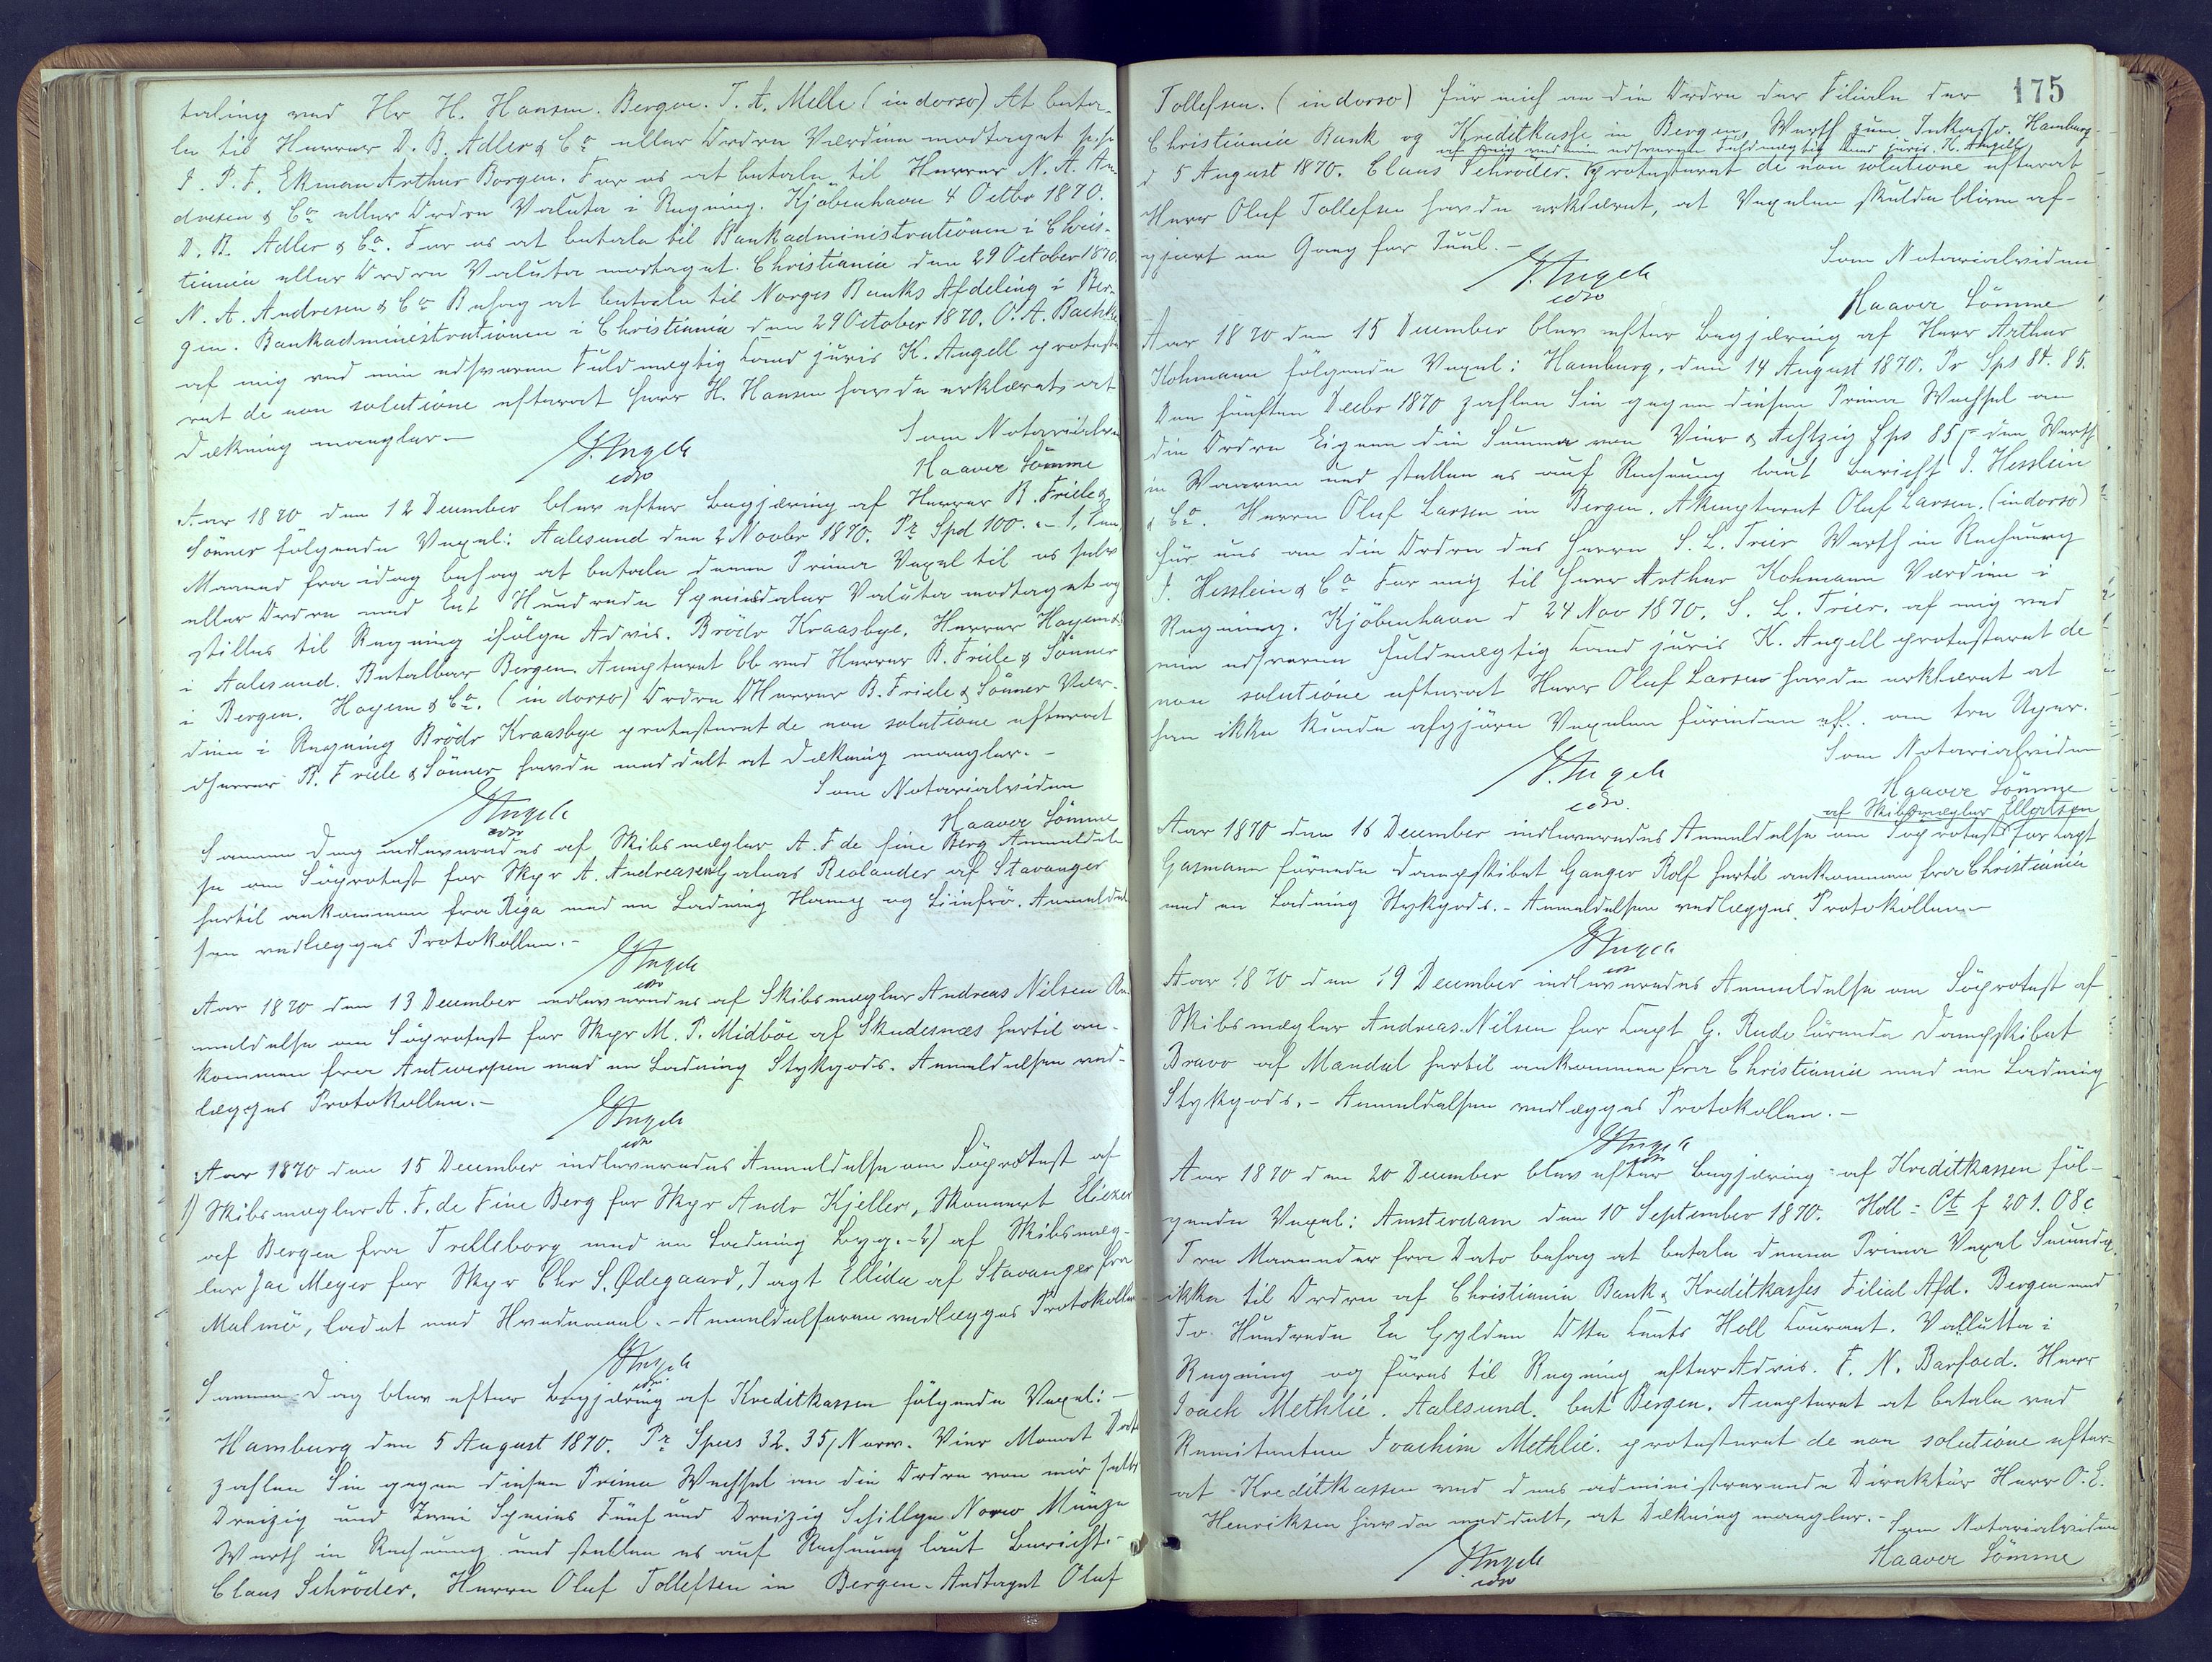 taling ved Hr H. Hansen. Bergen. T. A. Melle (in dorso) At beta-
le til Herrer D. B. Adler & Co eller Ordre Værdien modtaget
I. P. F. Ekman Arthur Borgen. For os at betale til Herrer N. A. An-
dresen & Co eller Ordre Valuta i Regning. Kjöbenhavn 4 Octbr 1870.
D. B. Adler & Co. For os at betale til Bankadministrationen i Chris-
tiania eller Ordre Valuta modtaget. Christiania den 29 October 1870.
N. A. Andresen & Co Behag at betale til Norges Banks Afdeling i Ber-
gen. Bankadministrationen i Christiania den 29 October 1870. O. A. Bachke
af mig ved min edsvorne Fuldmægtig Cand juris K. Angell proteste-
ret de non solutione efterat Herr H. Hansen havde erklæret, at
Dækning mangler.-
Som Notarialvidne
Haaver Sömme
Aar 1870 den 12 December blev efter Begjæring af Herrer B. Friele &
Sönner fölgende Vexel: Aalesund den 2 Novbr 1870. Pr Spd 100. „- 1, Een
Maaned fra idag behag at betale denne Prima Vexel til os selv
eller Ordre med Et Hundrede Speciedaler Valuta modtaget og
stilles til Regning ifölge Advis. Brödr Kraasbye. Herrer Hoyem &
i Aalesund. Betalbar Bergen. Acepteret bb ved Herrer B. Friele & Sönner
i Bergen. Hoyem & Co. (in dorso) Ordre DHerrer B. Friele & Sönner Vær-
dien i Regning Brödr Kraasbye protesteret de non solutione efterat
dherrer B. Friele & Sönner havde meddelt at Dækning mangler.-
Som Notarialvidne
Haaver Sömme
Samme Dag indleveredes af Skibsmægler A. F de Fine Berg Anmeldel-
se om Söprotest for Skpr A. Andreasen Galeas Reolander af Stavanger
hertil ankommen fra Riga med en Ladning Hamp og Liinfrö. Anmeldel-
sen vedlægges Protokollen.-
Aar 1870 den 13 December indleveredes af Skibsmægler Andreas Nilsen An-
meldelse om Söprotest for Skpr M. P. Midböe af Skudesnæs hertil an-
kommen fra Antwerpen med en Ladning Stykgods. Anmeldelsen ved-
lægges Protokollen.-
Aar 1870 den 15 December indleveredes Anmeldelse om Söprotest af
1) Skibsmægler A. F. de Fine Berg for Skpr Andr Kjeller, Skonnert Eliezer
af Bergen fra Trelleborg med en Ladning Byg.- 2) af Skibsmæg-
ler Jac Meyer for Skpr Chr S. Ødegaard, Jagt Ellida af Stavanger fra
Malmö, ladet med Hvedemeel.- Anmeldelserne vedlægges Protokollen
Samme Dag blev efter Begjæring af Kreditkassen fölgende Vexel:-
Hamburg den 5 August 1870. Pr Spes 32. 35, Norw. Vier Monat Dato
zahlen Sie gegen diesen Prima Wechsel an die Ordre von mir selbst
Dreizig und Zwei Species Fünf und Dreizig Schillge Norw Münze
Werth in Rechnung und stellen es auf Rechnung laut Bericht.-
Claus Schröder. Herrn Oluf Tollefsen in Bergen. Andtaget Oluf
175
Tollefsen. (in dorso) für mich an die Ordre der Filiale der
Christiania Bank og Kreditkasse in Bergen, Werth zum Inkasso. Hamburg
af mig ved min edsvorne Fuldmægtig Cand juris. K. Angell
d 5 August 1870. Claus Schröder. protesteret de non solutione efterat
Herr Oluf Tollefsen havde erklæret, at Vexelen skulde blive af-
gjort en Gang for Juul.-
Som Notarialvidne
Haaver Sömme
Aar 1870 den 15 December blev efter Begjæring af Herr Arthur
Kohmann fölgende Vexel: Hamburg, den 14 August 1870. Pr Sps 84. 85.
Den fünften Decbr 1870 zahlen Sie gegen diesen Prima Wechsel an
die Ordre Eigene die Summa von Vier & Achtzig Sps 85/- den Werth
in Waaren und stellen es auf Rechnung laut Bericht I. Hesslein
& Co. Herrn Oluf Larsen in Bergen. Akcepteret Oluf Larsen. (in dorso)
für uns an die Ordre des Herrn S. L. Trier Werth in Rechnung
I. Hesslein & Co For mig til Herr Arthur Kohmann Værdien i
Regning. Kjöbenhavn d 24 Nov 1870. S. L. Trier. af mig ved
min edsvorne Fuldmægtig Cand juris K. Angell protesteret de
non solutione efterat Herr Oluf Larsen havde erklæret at
han ikke kunde afgjöre Vexelen förinden om tre Uger.
Som Notarialvidne
Haaver Sömme
af Skibsmægler Ellertsen
Aar 1870 den 16 December indleveredes Anmeldelse om Söprotest for Capt
Gasmann förende Dampskibet Ganger Rolf hertil ankommen fra Christiania
med en Ladning Stykgods.- Anmeldelsen vedlægges Protokollen.-
Aar 1870 den 19 December indleveredes Anmeldelse om Söprotest af
Skibsmægler Andreas Nilsen for Capt G. Rude förende Dampskibet
Bravo af Mandal hertil ankommen fra Christiania med en Ladning
Stykgods.- Anmeldelsen vedlægges Protokollen.-
Aar 1870 den 20 December blev efter Begjæring af Kreditkassen föl-
gende Vexel: Amsterdam den 10 September 1870. Holl: Ct f 201. 08 c
Tre Maaneder fra Dato behag at betale denne Prima Vexel Secunda
ikke til Ordre af Christiania Bank & Kreditkasses Filial Afd. Bergen med
To Hundrede En Gylden Otte Cents Holl Courant. Vallutta i
Regning og föres til Regning efter Advis. F. N. Barfoed. Herr
Joach Methlie. Aalesund. bet Bergen. Acepteret at betale ved
Remitenten Joachim Methlie. protesteret de non solutione efter-
at Kreditkassen ved dens administrerende Direktör Herr O. E.
Henriksen havde meddelt, at Dækning mangler.-
Som Notarialvidne
Haaver Sömme